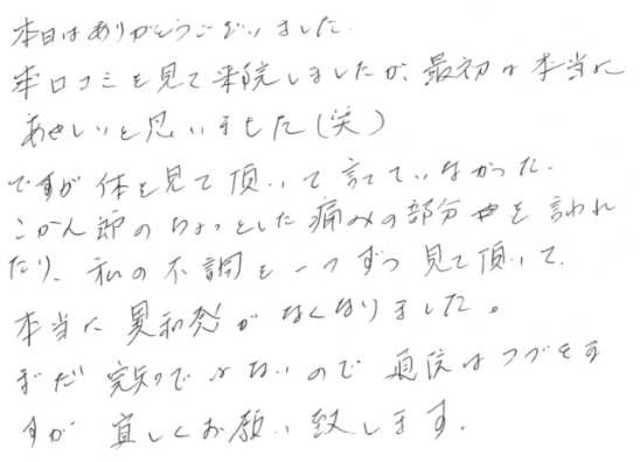 本日はありがとうございました。
口コミを見て来院しましたが、最初は本当に
あやしいと思いました(笑)
ですが 体を見て頂いて 言ていなかった、
こかん節のちょっとした痛みの部分を言われ
たり、私の不調を一つずつ見て頂いて、
本当に異和感がなくなりました。
まだ完知ではないので 通院はつづきます
すが 宜しくお願い致します。